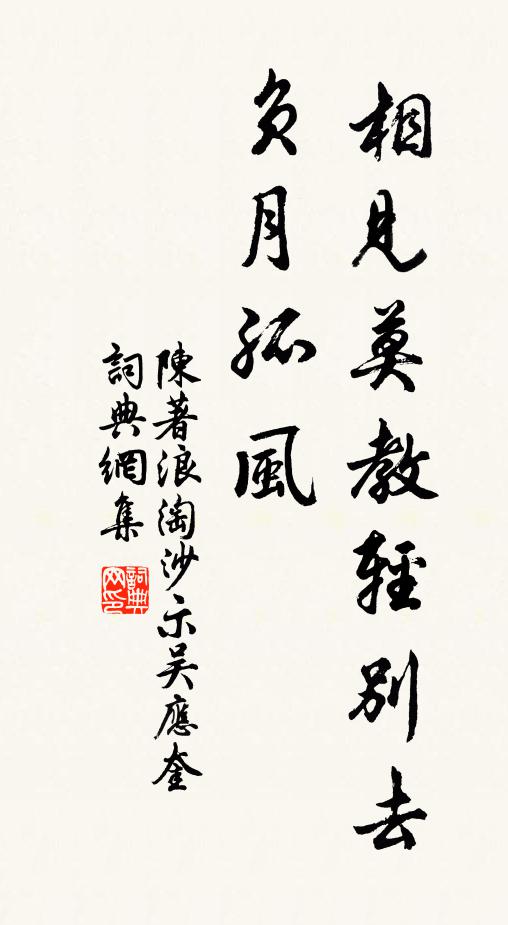 相見莫教輕別去
負月孤風
陳著浪淘沙示吳應奎
詞典網集
詞典
网印